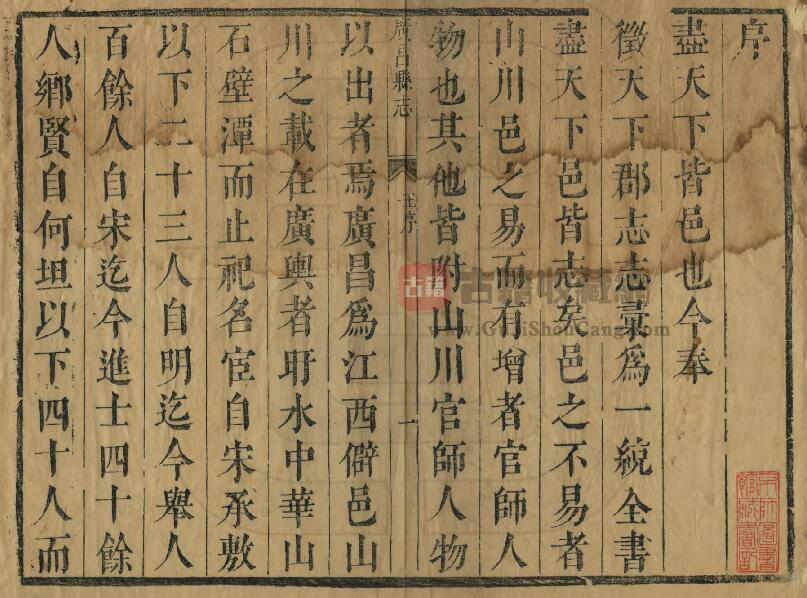 序
盡天下皆邑也今奉
徵天下郡志志彙爲一統全書
盡天下邑皆志矣邑之不易者
山川邑之易而有增者官師人
物也其他皆附山川官師人物
廣昌縣志
王序
一
以出者焉廣昌爲江西僻邑山
川之載在廣輿者盱水中華山
石壁潭而止祀名宦自宋承敷
以下二十三人自明迄今舉人
百餘人自宋迄今進士四十餘
人鄉賢自何坦以下四十人而
古籍
古籍收藏網
www.GuJiShouCang.com